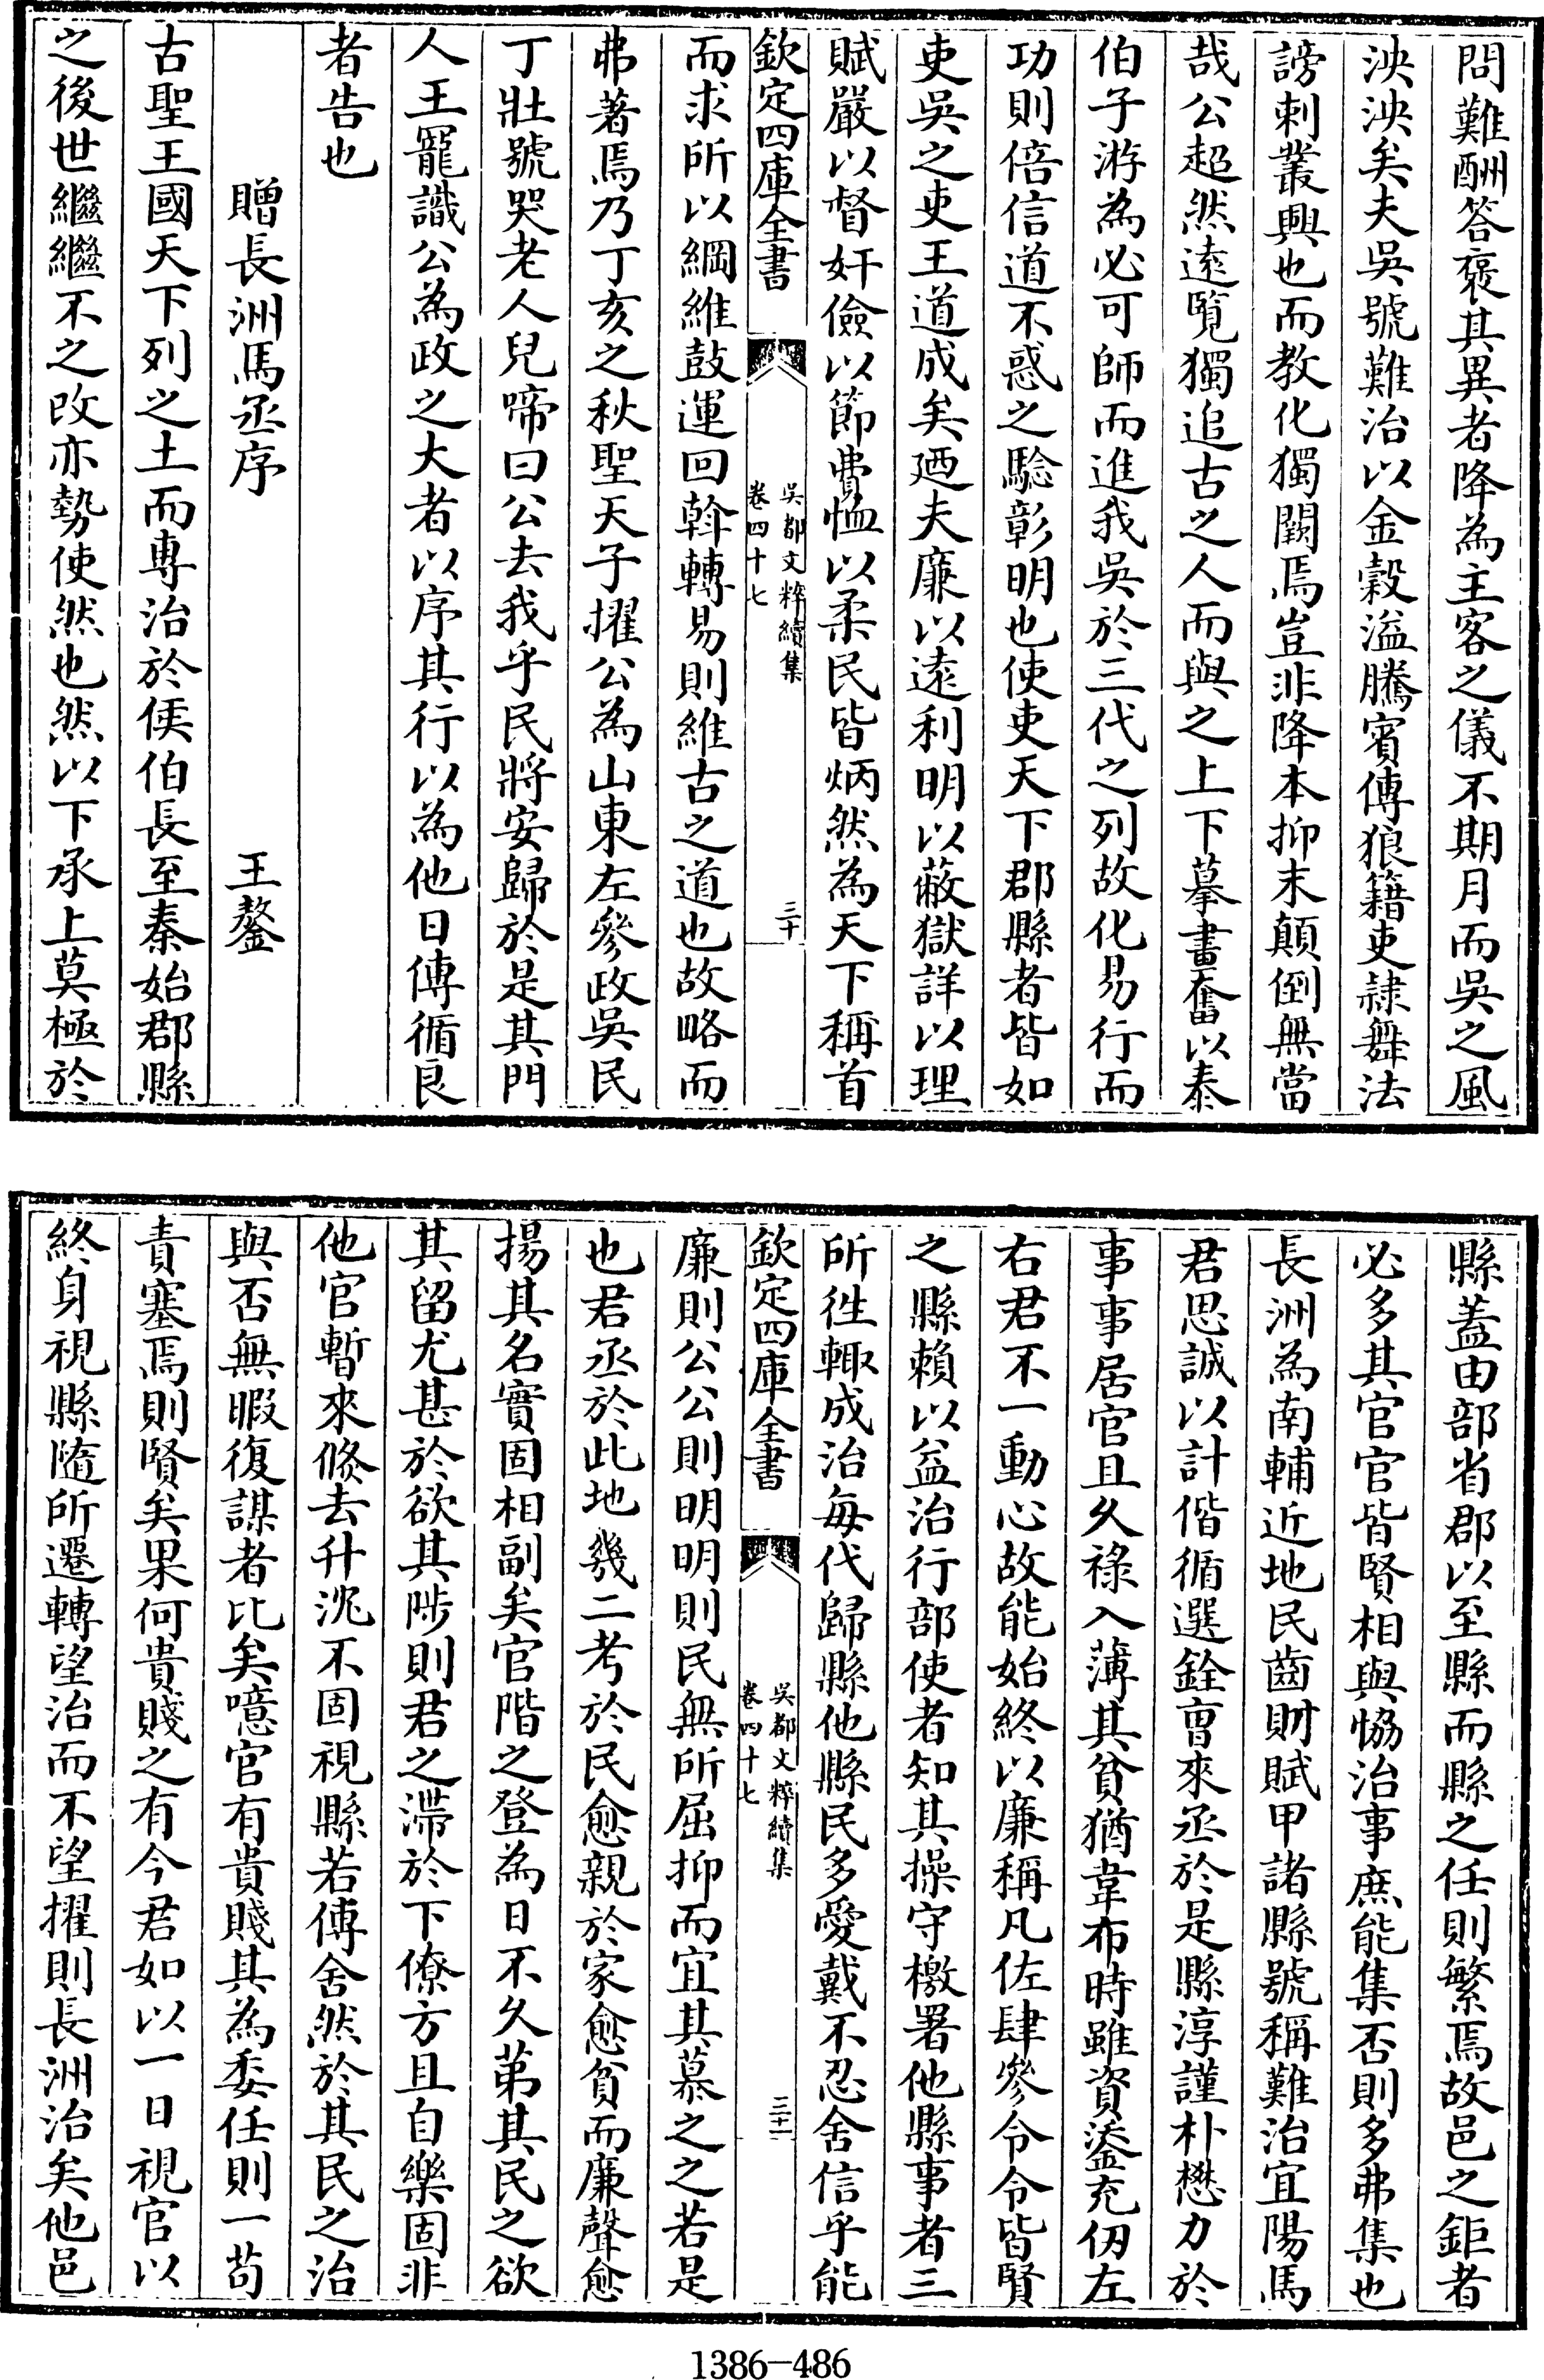 問難酬答褒其異者降為主客之儀不期月而吳之風
泱泱矣夫吳號難治以金穀溢騰賓傳狼籍吏隷舞法
謗刺叢興也而教化獨闕焉豈非降本抑末顛倒無當
哉公超然遠覧獨追古之人而與之上下摹畫奮以泰
伯子游為必可師而進我吳於三代之列故化易行而
功則倍信道不惑之驗彰明也使吏天下郡縣者皆如
吏吳之吏王道成矣廼夫廉以遠利明以蔽獄詳以理
賦嚴以督奸儉以節費恤以柔民皆炳然為天下稱首
欽定四庫全書
吳都文粹續集
卷四十七
三十
而求所以綱維鼓運回斡轉易則維古之道也故略而
弗著焉乃丁亥之秋聖天子擢公為山東左參政吳民
丁壯號哭老人兒啼曰公去我乎民將安歸於是其門
人王寵識公為政之大者以序其行以為他日傳循良
者告也
贈長洲馬丞序
王鏊
古聖王國天下列之土而專治於侯伯長至秦始郡縣
之後世繼繼不之改亦勢使然也然以下承上莫極於
縣蓋由部省郡以至縣而縣之任則繁焉故邑之鉅者
必多其官官皆賢相與恊治事庶能集否則多弗集也
長洲為南輔近地民齒財賦甲諸縣號稱難治宜陽馬
君思誠以計偕循選銓曹來丞於是縣淳謹朴懋力於
事事居官且乆祿入薄其貧猶韋布時雖資遙充伤左
右君不一動心故能始終以廉稱凡佐肆參令令皆賢
之縣賴以益治行部使者知其操守檄署他縣事者三
所徃輙成治每代歸縣他縣民多愛戴不忍舍信乎能
欽定四庫全書
吳都文粹續集
卷四十七
三十一
廉則公公則明明則民無所屈抑而宜其慕之之若是
也君丞於此地幾二考於民愈親於家愈貧而廉聲愈
揚其名實固相副矣官階之登為日不乆第其民之欲
其留尤甚於欲其陟則君之滯於下僚方且自樂固非
他官暫來倏去升沈不固視縣若傳舍然於其民之治
與否無暇復謀者比矣噫官有貴賤其為委任則一苟
責塞焉則賢矣果何貴賤之有今君如以一日視官以
終身視縣隨所遷轉望治而不望擢則長洲治矣他邑
1386-486